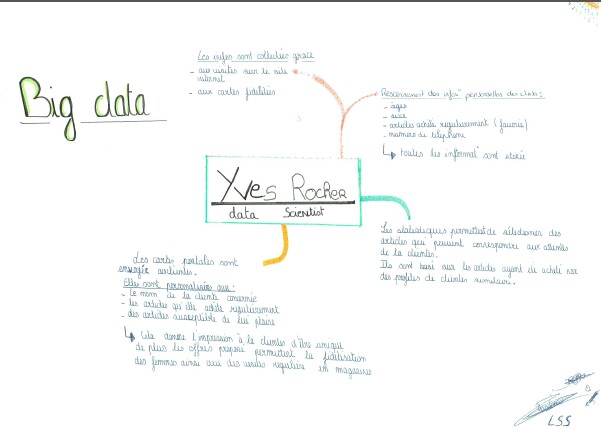 Big data
Les infos sont collectées grâce
- aux visites sur le site
internet
- aux cartes fidélités
Recensement des infos personnelles des clients :
- âges
- sexe
- articles acheté regulierement (favoris)
- numéro de téléphone
↳ toutes les informat° sont
Yves Rocher
data Scientist
Les statistiques permettent de sélectionner des
articles qui peuvent correspondre aux attentes
de la clientes.
Ils sont basé sur les articles ayant de acheté sur
des profiles de clientes similaire.
Les cartes postales sont
envoyée
Elles sont personnalisées avec :
- le nom de la cliente
- les articles qu'elle achète regulierement
- des articles susceptible de lui plaire
↳ Cela donne l'impression à la clientes d'être unique
de plus les offres propose permettent la fidélisation
des femmes ainsi que des visites regulière en magasins
L.S.S